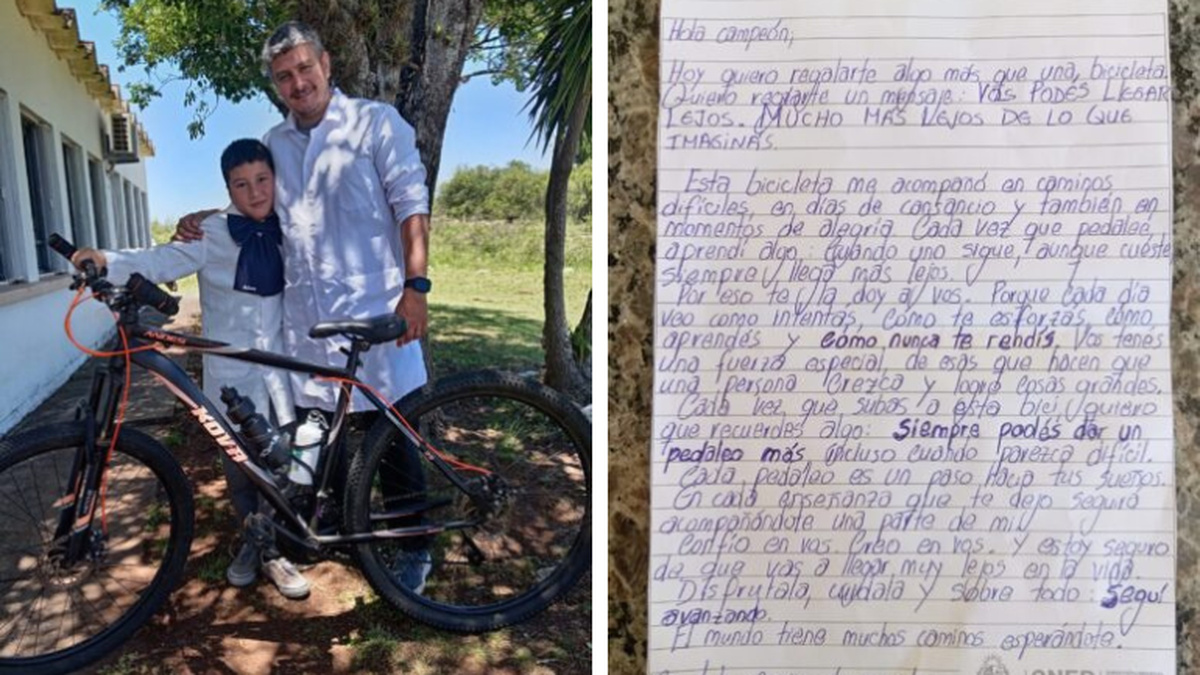 KOVA
Hola campeón,
Hoy quiero regalarte algo más que una bicicleta.
Quiero regalarte un mensaje: VOS PODÉS LLEGAR
LEJOS. MUCHO MÁS LEJOS DE LO QUE
IMAGINÁS.
Esta bicicleta me acompañó en caminos
difíciles, en días de constancio y también en
momentos de alegría. Cada vez que pedaleé,
aprendí algo: Cuando uno sigue, aunque cueste
siempre llega más lejos.
Por eso te la doy a vos. Porque cada día
veo como intentas, cómo te esforzás, cómo
aprendés y cómo nunca te rendís. Vos tenés
una fuerza especial, de esas que hacen que
una persona crezca y logre cosas grandes.
Cada vez que subas a esta bici, quiero
que recuerdes algo: Siempre podés dar un
pedaleo más incluso cuando parezca difícil.
Cada pedaleo es un paso hacia tus sueños.
En cada enseñanza que te dejo seguirá
acompañándote una parte de mí.
Confío en vos. Creo en vos. Y estoy seguro
de que vas a llegar muy lejos en la vida.
Disfrutala, cuidala y sobre todo: Seguí
avanzando.
El mundo tiene muchos caminos esperándote.